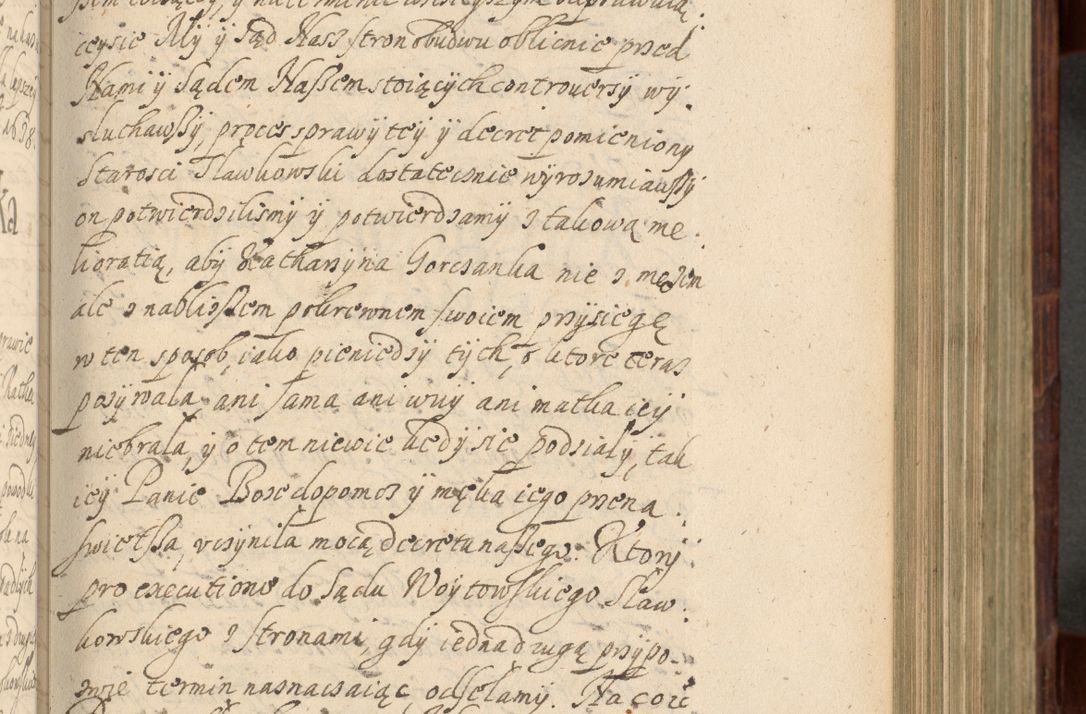 ceysie Mÿ ÿ Sąd Nasz stron obudwu oblicnie przed
Namiÿ Sądem Naszem stoiącÿch controuersÿ wÿ.
słuchawszÿ, proces sprawÿ teÿ ÿ decret pomienionÿ
Starosci Sławkowski dostatecznie wÿrozumiawszÿ
on potwierdzilismÿ ÿ potwierdzamÿ z takową me.
lioratią, abÿ Katharzÿna Gorczanka nie z mężem
ale z nabliższem pokrewnem swoiem przÿsięgę
w ten sposob, iako pieniedzÿ tÿch, o ktore teraz
pozÿwała ani sama ani wuÿ ani matka ieÿ
niebrała, ÿ o tem niewie kedÿ sie podziałÿ, tak
ieÿ Panie Boże dopomoz ÿ męka iego przena.
swietsza, vczÿniła mocą decretu naszego. Ktorÿ
pro executione do Sądu Woÿtowskiego Sław.
kowskiego z stronami, gdÿ iedna drugą przÿpo-
zwie termin naznaczaiąc, odsełamÿ. Na coż